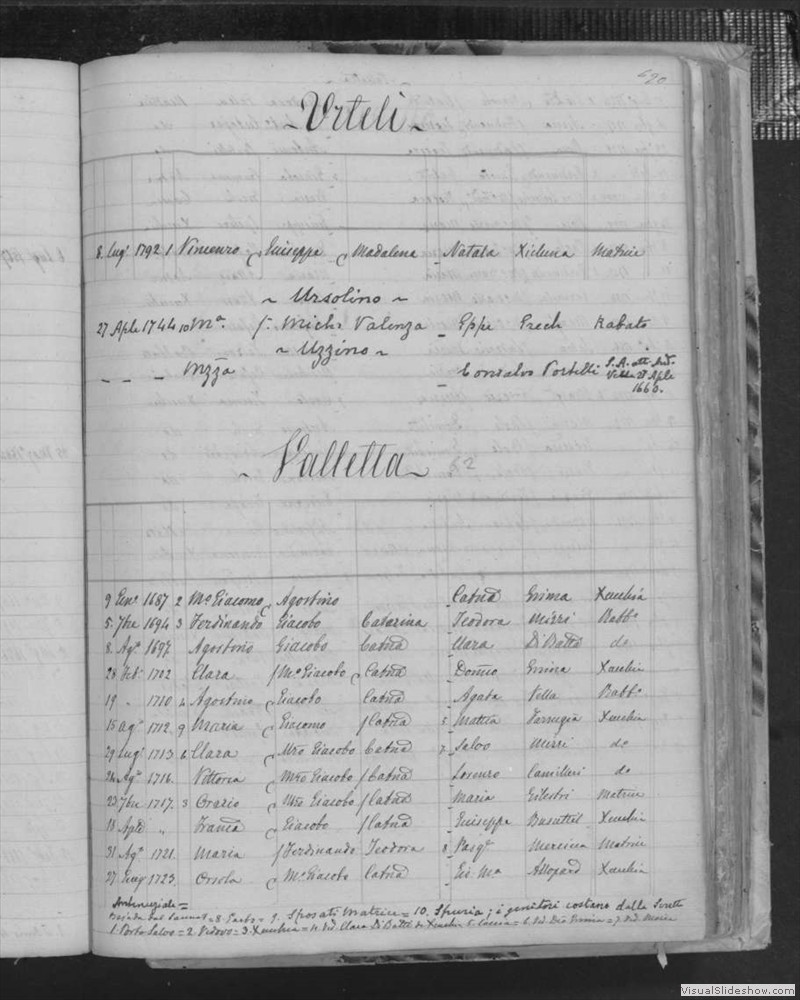 620
Urteli
8. Lug. 1792 1 Vincenzo Giuseppe Madalena Natala Xicluna Matrice
Ursolino
27 Aple 1744 10 Ma. f. Michi Valenza Gppe Grech Rabato
Uzzino
Nzza Consalvo Portelli S. A. atti And.
Vella 28 Aple
1660.
Valletta 62
9 Genn. 1687 2 Mo Giacomo Agostino Catna Grima Xeuchia
5. 7bre 1694 3 Ferdinando Giacobo Catarina Teodora Mizzi Rabbo
8. Ago 1697 Agostino Giacobo Catna Clara Di Batta do
28 Feb. 1702 Clara f Mo Giacobo Catna Domco Grima Xeuchia
19 " 1710 4 Agostino Giacobo Catna Agata Vella Rabbo
15 Ago 1712. 9 Maria Giacomo f Catna 5 Mattia Farrugia Xeuchia
29 Lugo 1713 6 Clara Mro Giacobo Catna 7 Salvo Mizzi do
26 Ago 1716. Vittoria Mro Giacobo f Catna Lorenzo Camilleri do
23 7bre 1717. 3 Orazio Mro Giacobo f Catna Maria Gilestri Matrice
18 Aple " Franca Giacobo f Catna Giuseppe Busuttil Xeuchia
31 Ago 1721. Maria f Ferdinando Teodora 8 Pasq. Mercieca Matrice
27 1723. Orsola Mo Giacobo Catna Gio. Ma Allegard Xeuchia
= 8. Garbo = 9. Sposati Matrice = 10. Spuria; i genitori costano dalle
1. Porto Salvo = 2. Vedovo = 3. Xeuchia = 4. Ved. Clara Di Batta da Xeuchia 5. = 6. Ved. Grima = 7. Ved. Maria
VisualSlideshow.com